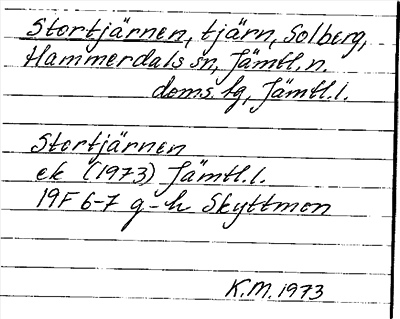 Stortjärnen, tjärn, Solberg,
Hammerdals sn, Jämtl. n.
doms. lg, Jämtl. l.
Stortjärnen
ek (1973) Jämtl. l.
19F 6-7 g-h Skyttmon
K.M. 1973